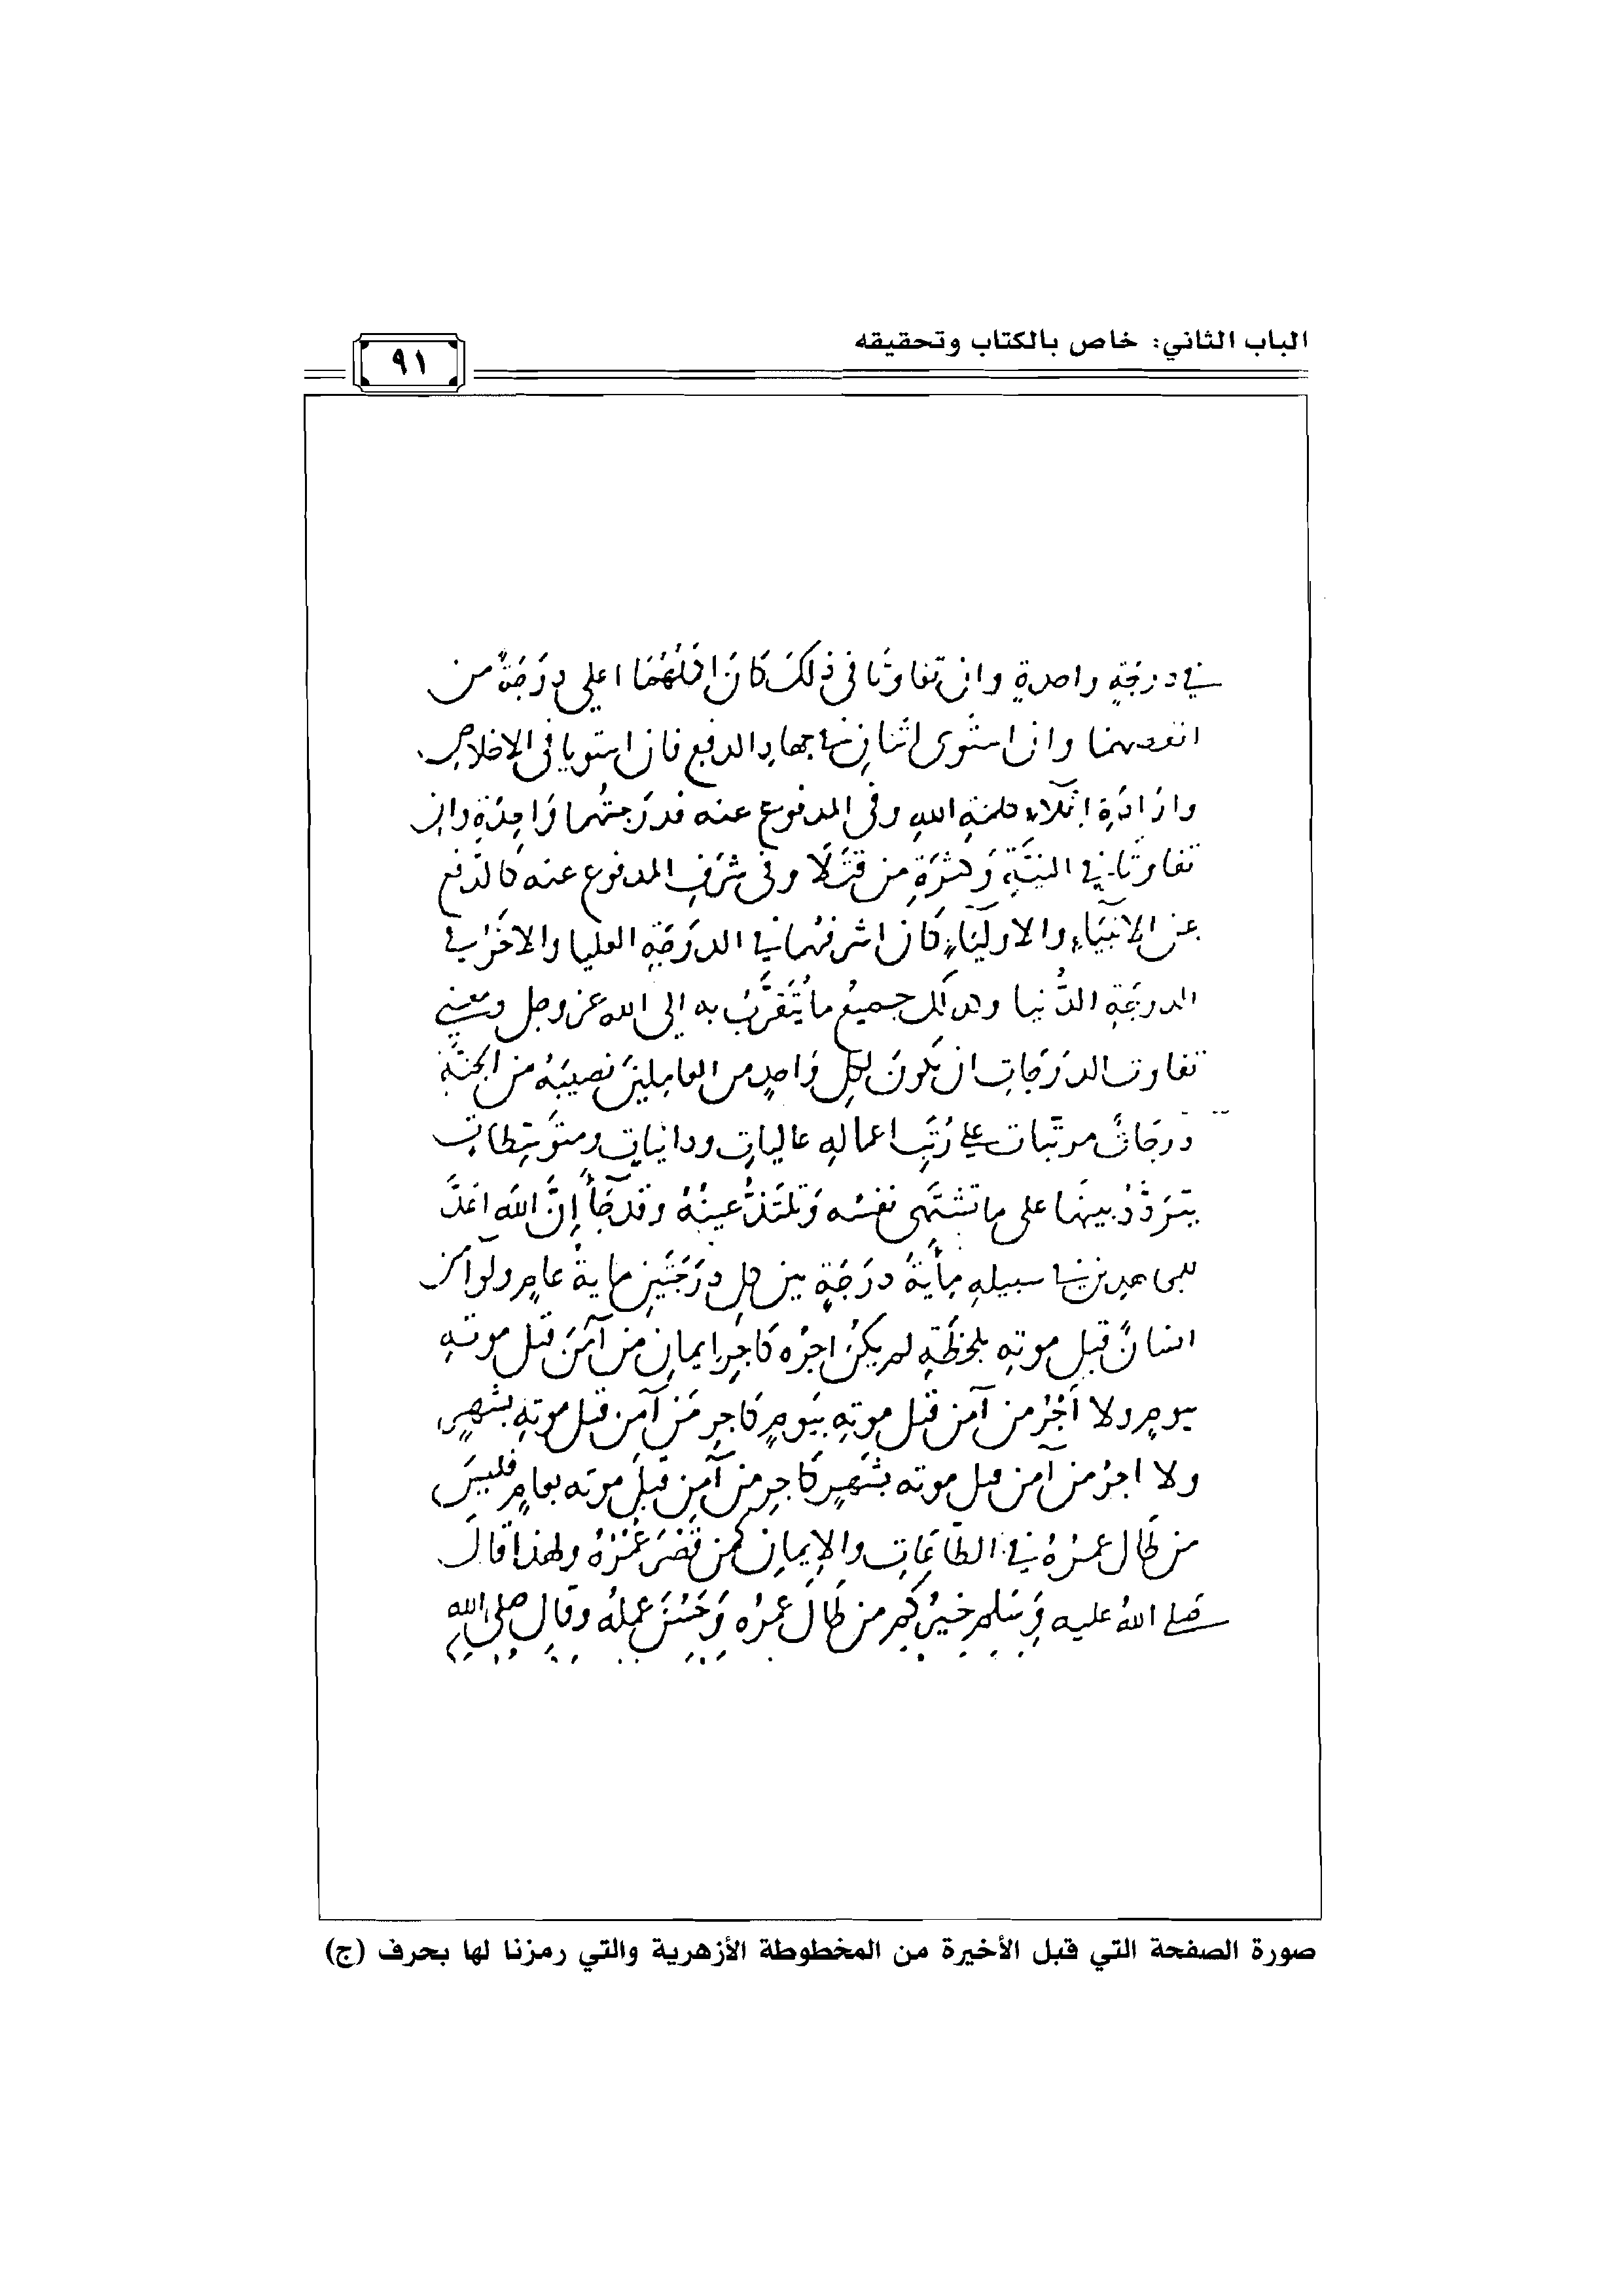 الباب الثاني: خاص بالكتاب وتحقيقه
٩١
في درجة واحدة وان تفاوتا في ذلك كان افضلهما اعلى درجة من
انقصهما وان استوى اثنان في جهاد الدفع فان استويا في الاخلاص
وارادة اعلاء كلمة الله وفي المدفوع عنه فدرجتهما واحدة وان
تفاوتا في النية وكثرة من قتلا وفي شرف المدفوع عنه كالدفع
عن الانبياء والاولياء كان اشرفهما في الدرجة العليا والاخر في
الدرجة الدنيا وكذلك جميع ما يتقرب به الى الله عز وجل ومعنى
تفاوت الدرجات ان يكون لكل واحد من العاملين نصيبه من الجنة
درجات مرتبات على رتب اعماله عاليات ودانيات ومتوسطات
يتردد بينها على ما تشتهي نفسه وتلتذ عينه وقد جآ إن الله اعد
للمجاهدين في سبيله مأية درجة بين كل درجتين ماية عام ولو آمن
انسان قبل موته بلحظة لم يكن اجره كاجر ايمان من آمن قبل موته
بيوم ولا أجر من آمن قبل موته بيوم كاجر من آمن قبل موته بشهر
ولا اجر من آمن قبل موته بشهر كاجر من آمن قبل موته بعام فليس
من طال عمره في الطاعات والإيمان كمن قصر عمره ولهذا قال
صلى الله عليه وسلم خيركم من طال عمره وحسن عمله وقال صلى الله
صورة الصفحة التي قبل الأخيرة من المخطوطة الأزهرية والتي رمزنا لها بحرف (ج)